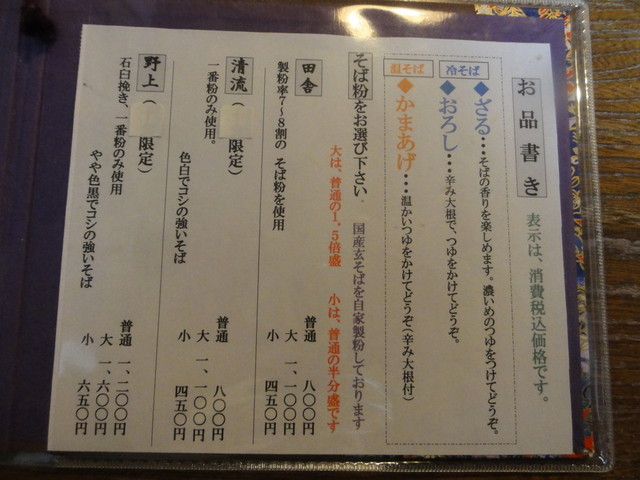 お品書き
表示は、消費税込価格です。
冷そば
◆ざる・・・そばの香りを楽しめます。濃いめのつゆをつけてどうぞ。
◆おろし・・・辛み大根で、つゆをかけてどうぞ。
温そば
◆かまあげ・・・温かいつゆをかけてどうぞ(辛み大根付)
そば粉をお選び下さい。 国産玄そばを自家製粉しております
大は、普通の1.5倍盛 小は、普通の半分盛です
田舎
製粉率7〜8割の そば粉を使用
普通 八〇〇円
大 一、一〇〇円
小 四五〇円
清流( 限定)
一番粉のみ使用。
色白でコシの強いそば
普通 八〇〇円
大 一、一〇〇円
小 四五〇円
野上( 限定)
石臼挽き、一番粉のみ使用
やや色黒でコシの強いそば
普通 一、二〇〇円
大 一、六〇〇円
小 六五〇円